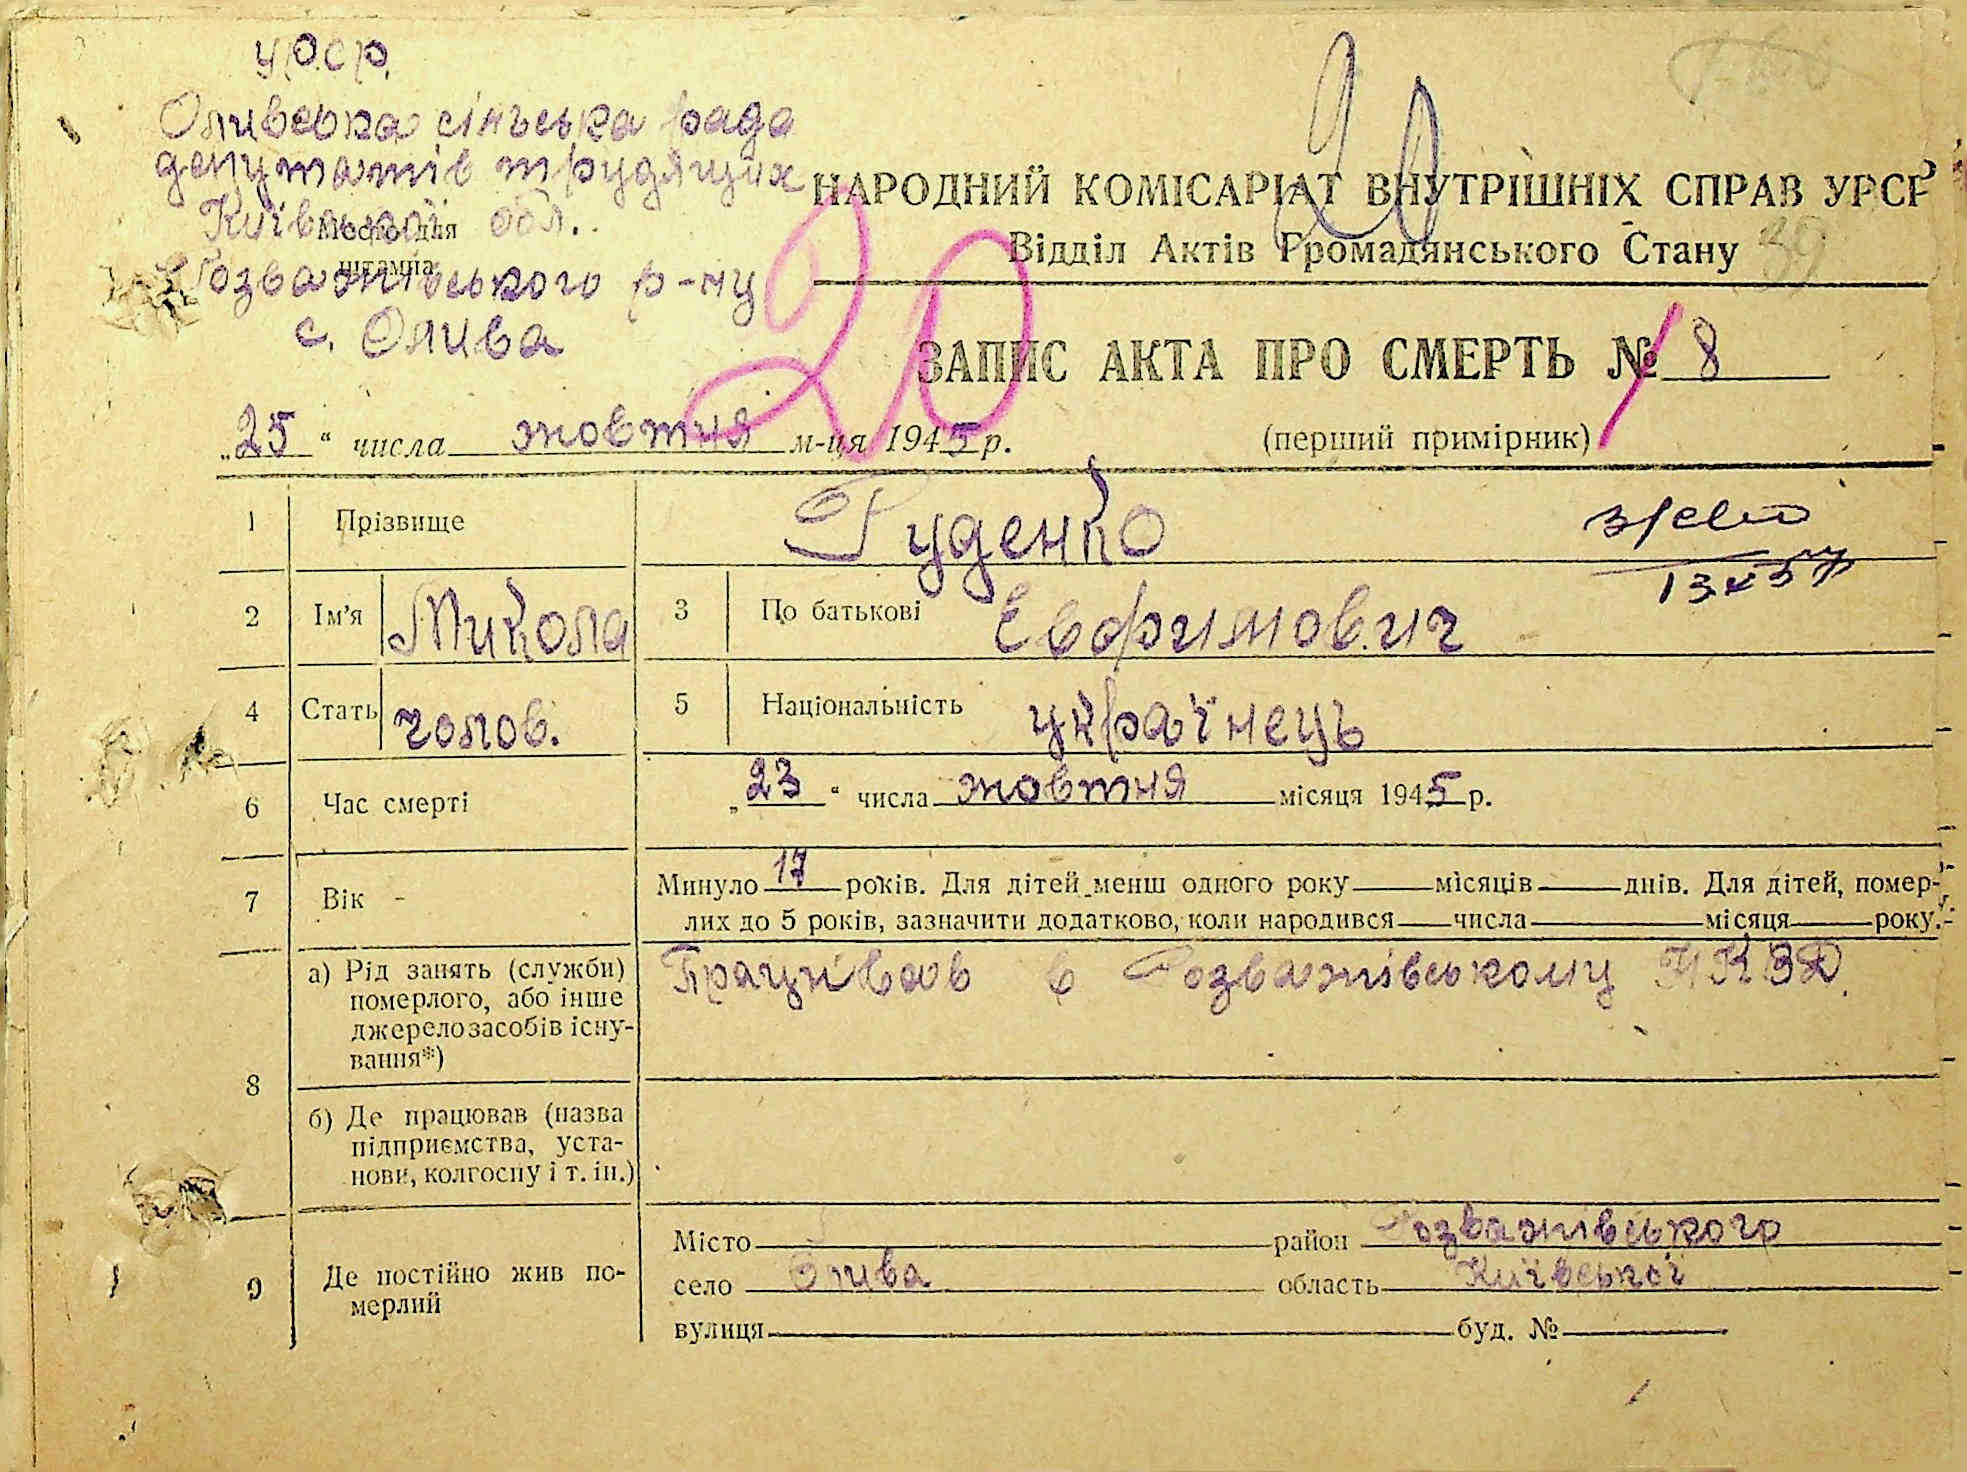 УРСР
Оливська сільська рада
депутатів трудящих
Київської обл.
Місце для
штампа
Розважівського р-ну
с. Олива
20
20
39
НАРОДНИЙ КОМІСАРІАТ ВНУТРІШНІХ СПРАВ УРСР
Відділ Актів Громадянського Стану
ЗАПИС АКТА ПРО СМЕРТЬ № 8
„25“ числа жовтня м-ця 1945 р. (перший примірник)
1 Прізвище Руденко
13 X 57
2 Ім'я Микола 3 По батькові Евфримович
4 Стать чолов. 5 Національність українець
6 Час смерті „23“ числа жовтня місяця 1945 р.
7 Вік - Минуло 17 років. Для дітей менш одного року місяців днів. Для дітей, помер-
лих до 5 років, зазначити додатково, коли народився числа місяця року.
8 а) Рід занять (служби) Працював в Розважівському НКВД.
померлого, або інше
джерело засобів існу-
вання*)
б) Де працював (назва
підприємства, уста-
нови, колгоспу і т. ін.)
9 Де постійно жив по-
мерлий
Місто район Розважівського
село Олива область Київської
вулиця буд. №